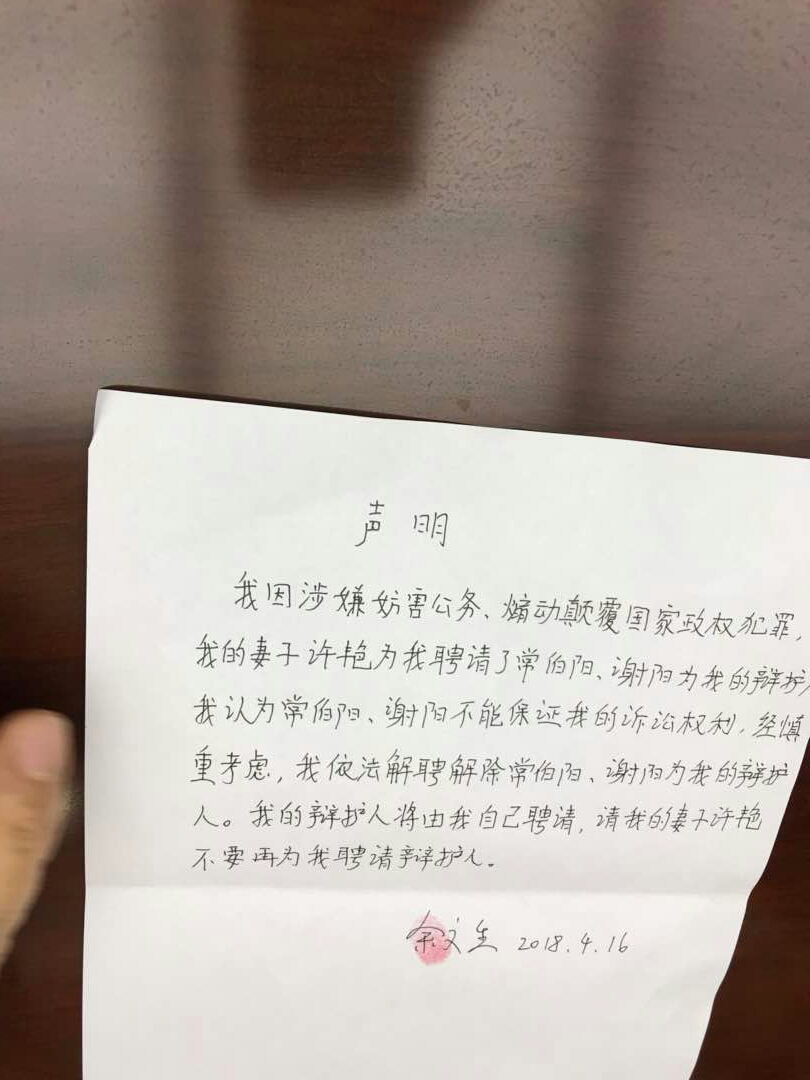 声 明
我因涉嫌妨害公务、煽动颠覆国家政权犯罪,
我的妻子许艳为我聘请了常伯阳、谢阳为我的辩护人
我认为常伯阳、谢阳不能保证我的诉讼权利,经慎
重考虑,我依法解聘解除常伯阳、谢阳为我的辩护
人。我的辩护人将由我自己聘请,请我的妻子许艳
不要再为我聘请辩护人。
余文生 2018.4.16